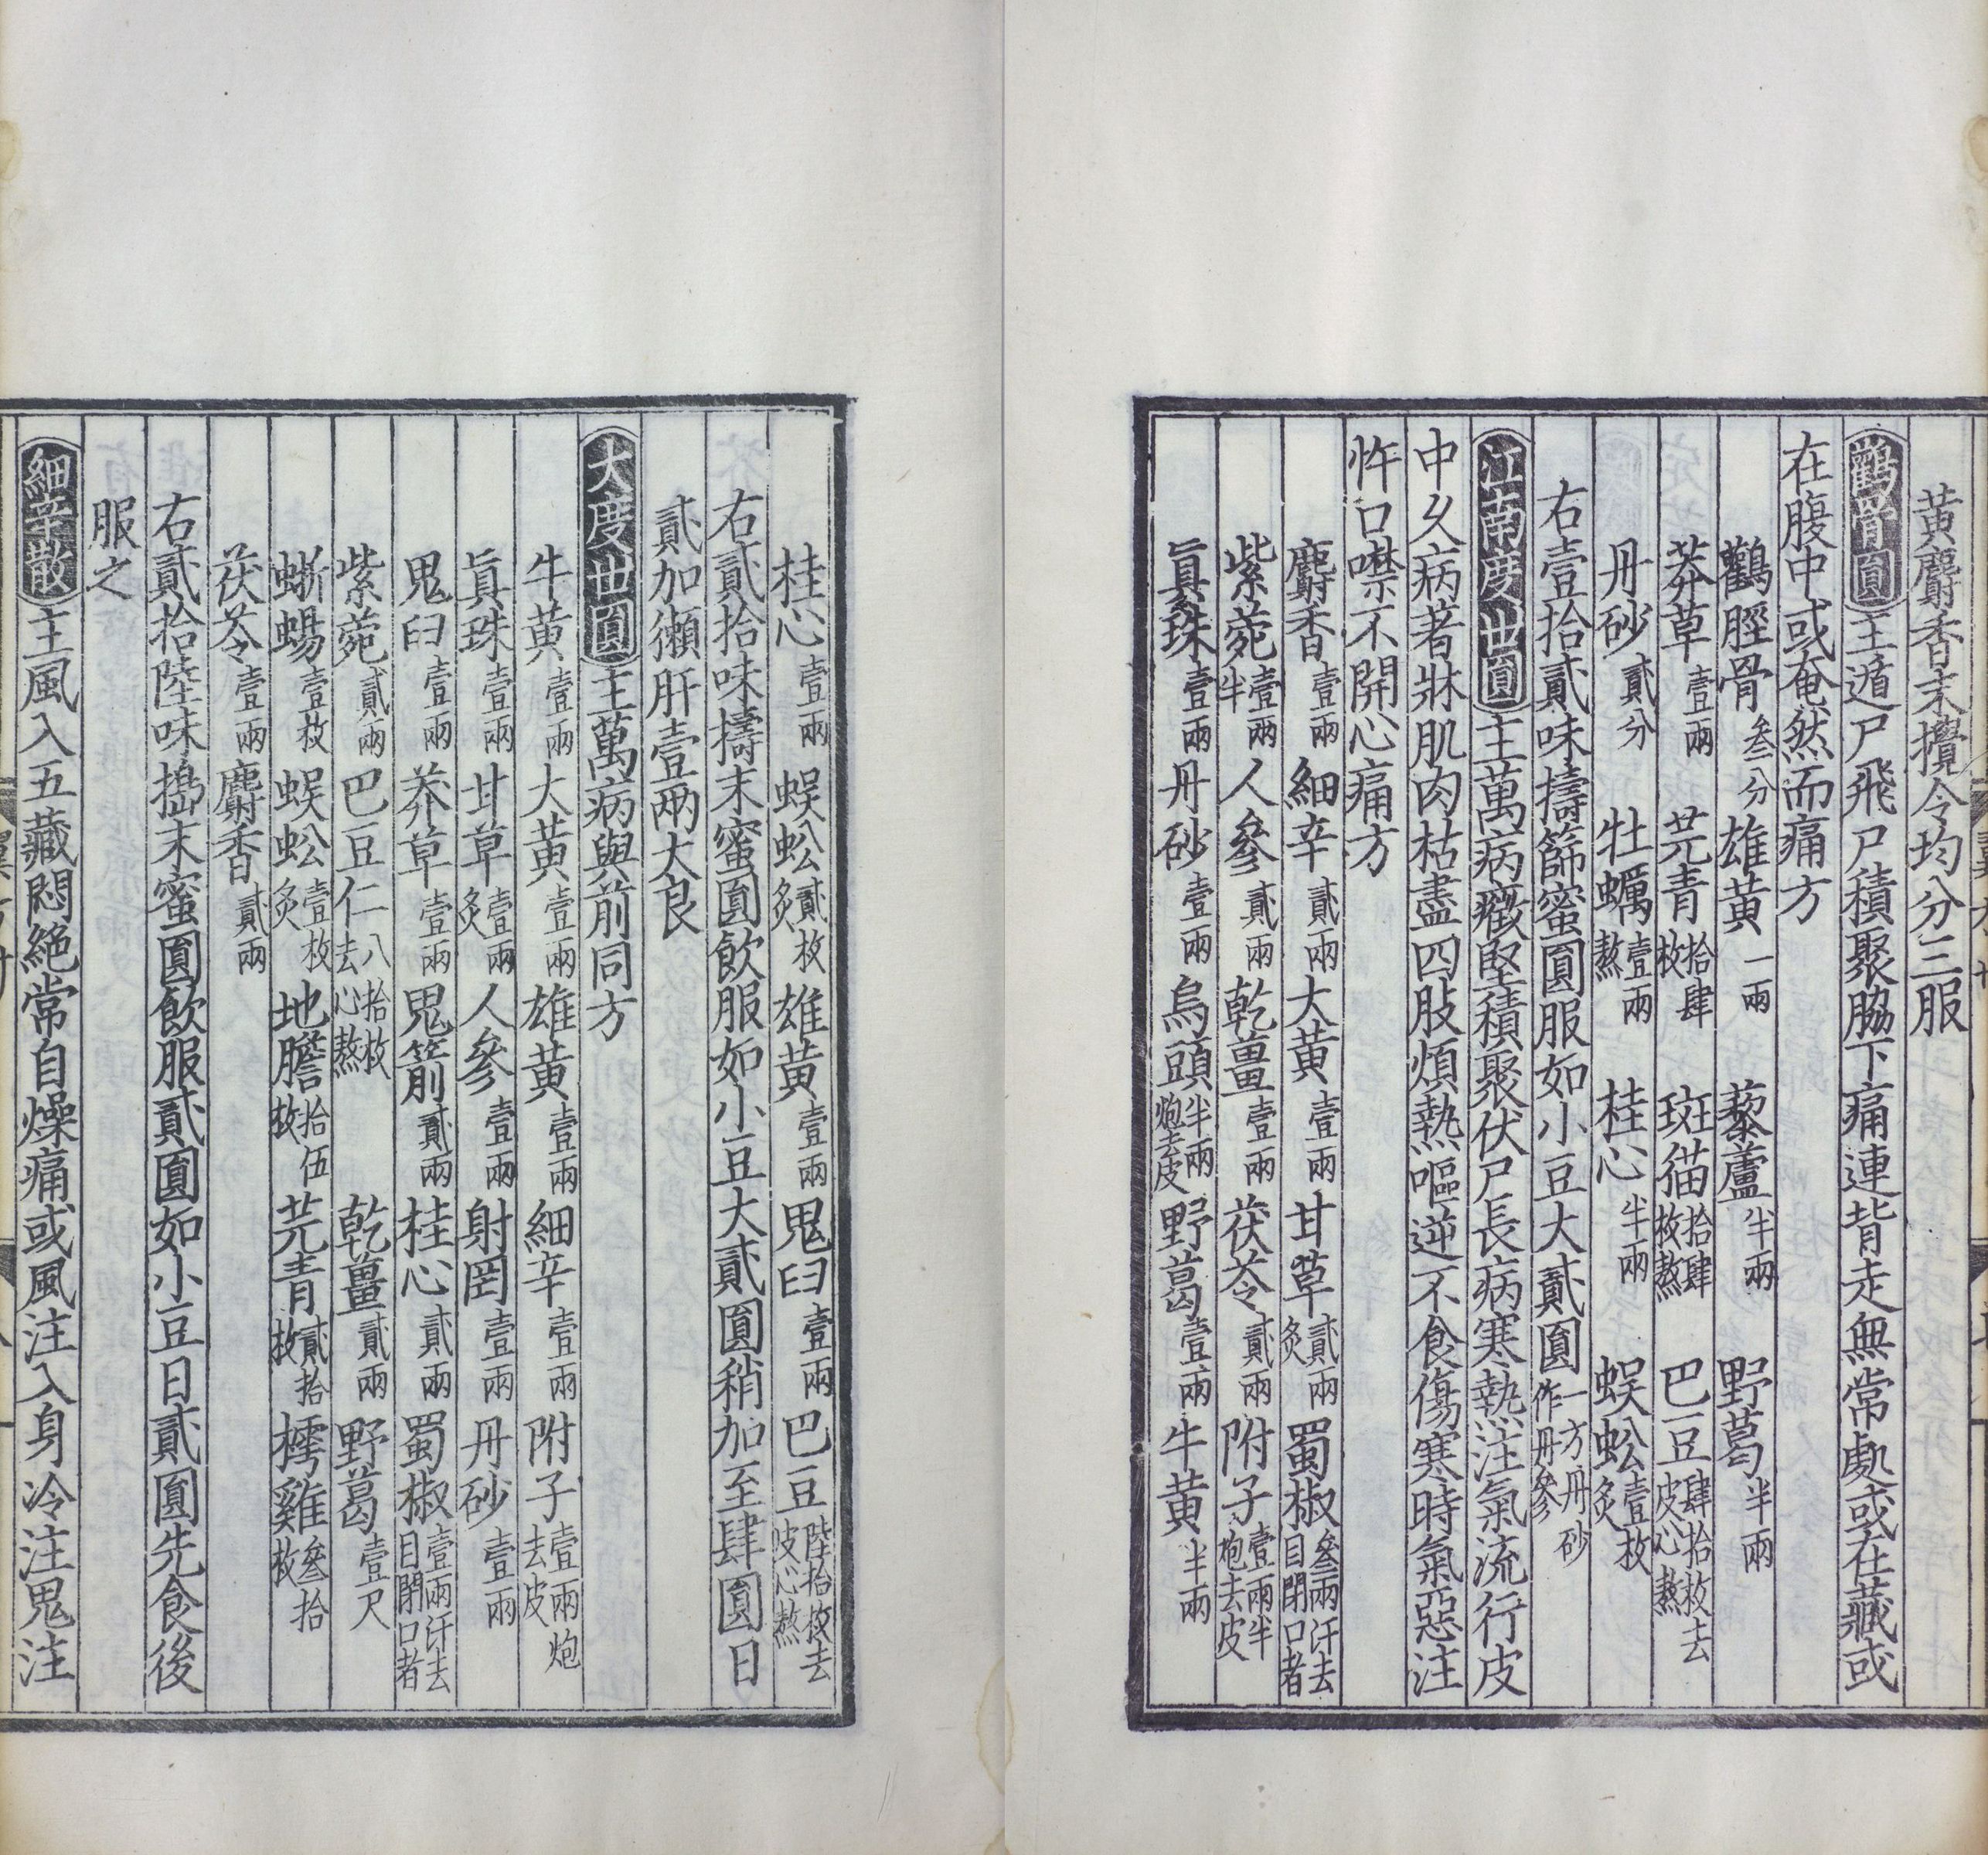 黃麝香末攪令均分三服
鸛骨圓主遁尸飛尸積聚脇下痛連背走無常處或在藏或
在腹中或奄然而痛方
鸛脛骨叁分雄黃一兩藜蘆半兩野葛半兩
莽草壹兩芫青拾肆枚斑猫拾肆枚熬巴豆肆拾枚去皮心熬
丹砂貳分牡蠣壹兩熬桂心半兩蜈蚣壹枚炙
右壹拾貳味擣篩蜜圓服如小豆大貳圓一方丹砂作丹參
江南度世圓主萬病癥堅積聚伏尸長病寒熱注氣流行皮
中乆病著牀肌肉枯盡四肢煩熱嘔逆不食傷寒時氣惡注
忤口噤不開心痛方
麝香壹兩細辛貳兩大黃壹兩甘草貳兩炙蜀椒叁兩汗去目閉口者
紫菀壹兩半人參貳兩乾薑壹兩茯苓貳兩附子壹兩半炮去皮
眞珠壹兩丹砂壹兩烏頭半兩炮去皮野葛壹兩牛黃半兩
桂心壹兩蜈蚣貳枚炙雄黃壹兩鬼臼壹兩巴豆陸拾枚去皮心熬
右貳拾味擣末蜜圓飲服如小豆大貳圓稍加至肆圓日
貳加獺肝壹兩大良
大度世圓主萬病與前同方
牛黃壹兩大黃壹兩雄黃壹兩細辛壹兩附子壹兩炮去皮
眞珠壹兩甘草壹兩炙人參壹兩射罔壹兩丹砂壹兩
鬼臼壹兩莽草壹兩鬼箭貳兩桂心貳兩蜀椒壹兩汗去目閉口者
紫菀貳兩巴豆仁八拾枚去心熬乾薑貳兩野葛壹尺
蜥蜴壹枚蜈蚣壹枚炙地膽拾伍枚芫青貳拾枚樗雞叁拾枚
茯苓壹兩麝香貳兩
右貳拾陸味搗末蜜圓飲服貳圓如小豆日貳圓先食後
服之
細辛散主風入五藏悶絕常自燥痛或風注入身冷注鬼注